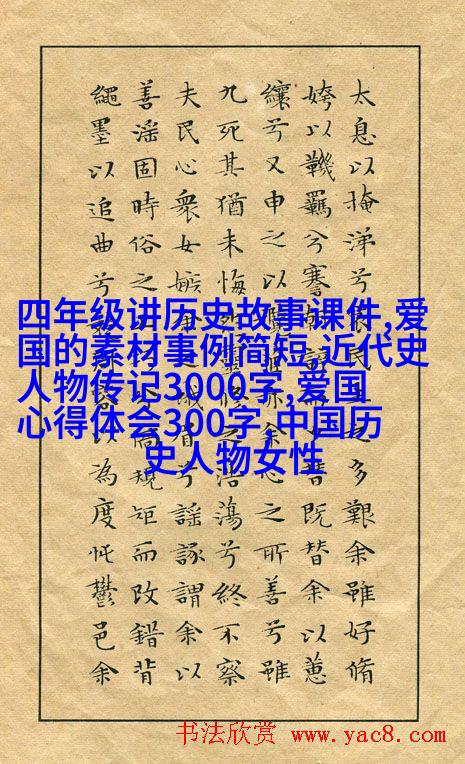 四年级讲历史故事课件,爱
国的素材事例简短,近代史
人物传记3000字,爱国
心得体会300字,中国历
史人物女性
太息以掩涕兮民之多艱余雖好脩
姱以鞿羈兮謇替既替余以蕙
纕兮又申之以余心之所善兮雖
九死其猶未悔之浩蕩兮終不察
夫民心衆女嫉眉兮謠諑謂余以
善淫固時俗之規矩而改錯背
繩墨以追曲兮以為度忳鬱邑余
书法欣赏 www.yac8.com